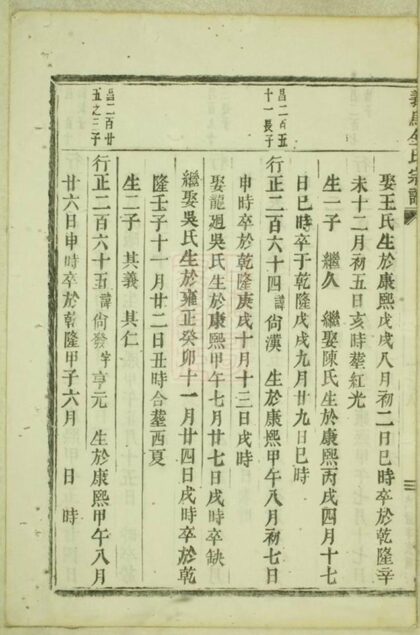 義烏 氏宗譜
娶王氏生於康熙戊戌八月初二日巳時卒於乾隆辛
未十二月初五日亥時塟紅光
生一子 繼久 繼娶陳氏生於康熙丙戌四月十七
日巳時卒于乾隆戊戌九月廿九日巳時
昌二百五
十一長子
行正二百六十四諱尙漢 生於康熙甲午八月初七日
申時卒於乾隆庚戌十月十三日戌時
娶龍廻吳氏生於康熙甲午七月廿七日戌時卒缺
繼娶吳氏生於雍正癸卯十一月廿四日戌時卒於乾
隆壬子十一月廿二日丑時合塟西夏
生二子 其義 其仁
昌二百廿
五之三子
行正二百六十五諱尙發字亨元 生於康熙甲午八月
廿六日申時卒於乾隆甲子六月 日 時